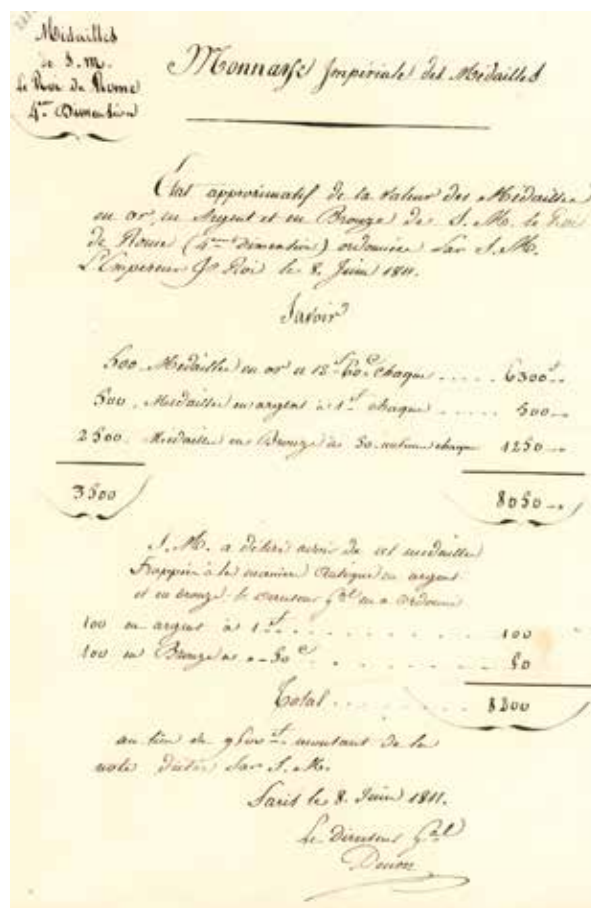 Médailles
de S. M.
Le Roi de Rome
4me Dimension
Monnaye Impériale des Médailles
État approximatif de la valeur des Médailles
en or, en Argent et en Bronze de S. M. le Roi
de Rome (4me Dimension) ordonnée Par S. M.
L'Empereur & Roi le 8. Juin 1811.
Savoir
500. Médailles en or à 12f 60c chaque ..... 6300f "
500. Médailles en argent à 1f chaque ..... 500 "
2500. Médailles en Bronze à 50. centimes chaque 1250 "
3500 8050 "
S. M. a désiré avoir de ces médailles
Frappées à la manière Antique en argent
et en bronze. le Directeur Gal en a ordonné
100 en argent à 1f ..... 100
100 en Bronze à " 50c ..... 50
Total ..... 8200
au lieu de montant de la
note dictée Par S. M.
Paris le 8. Juin 1811.
Le Directeur Gal
Denon